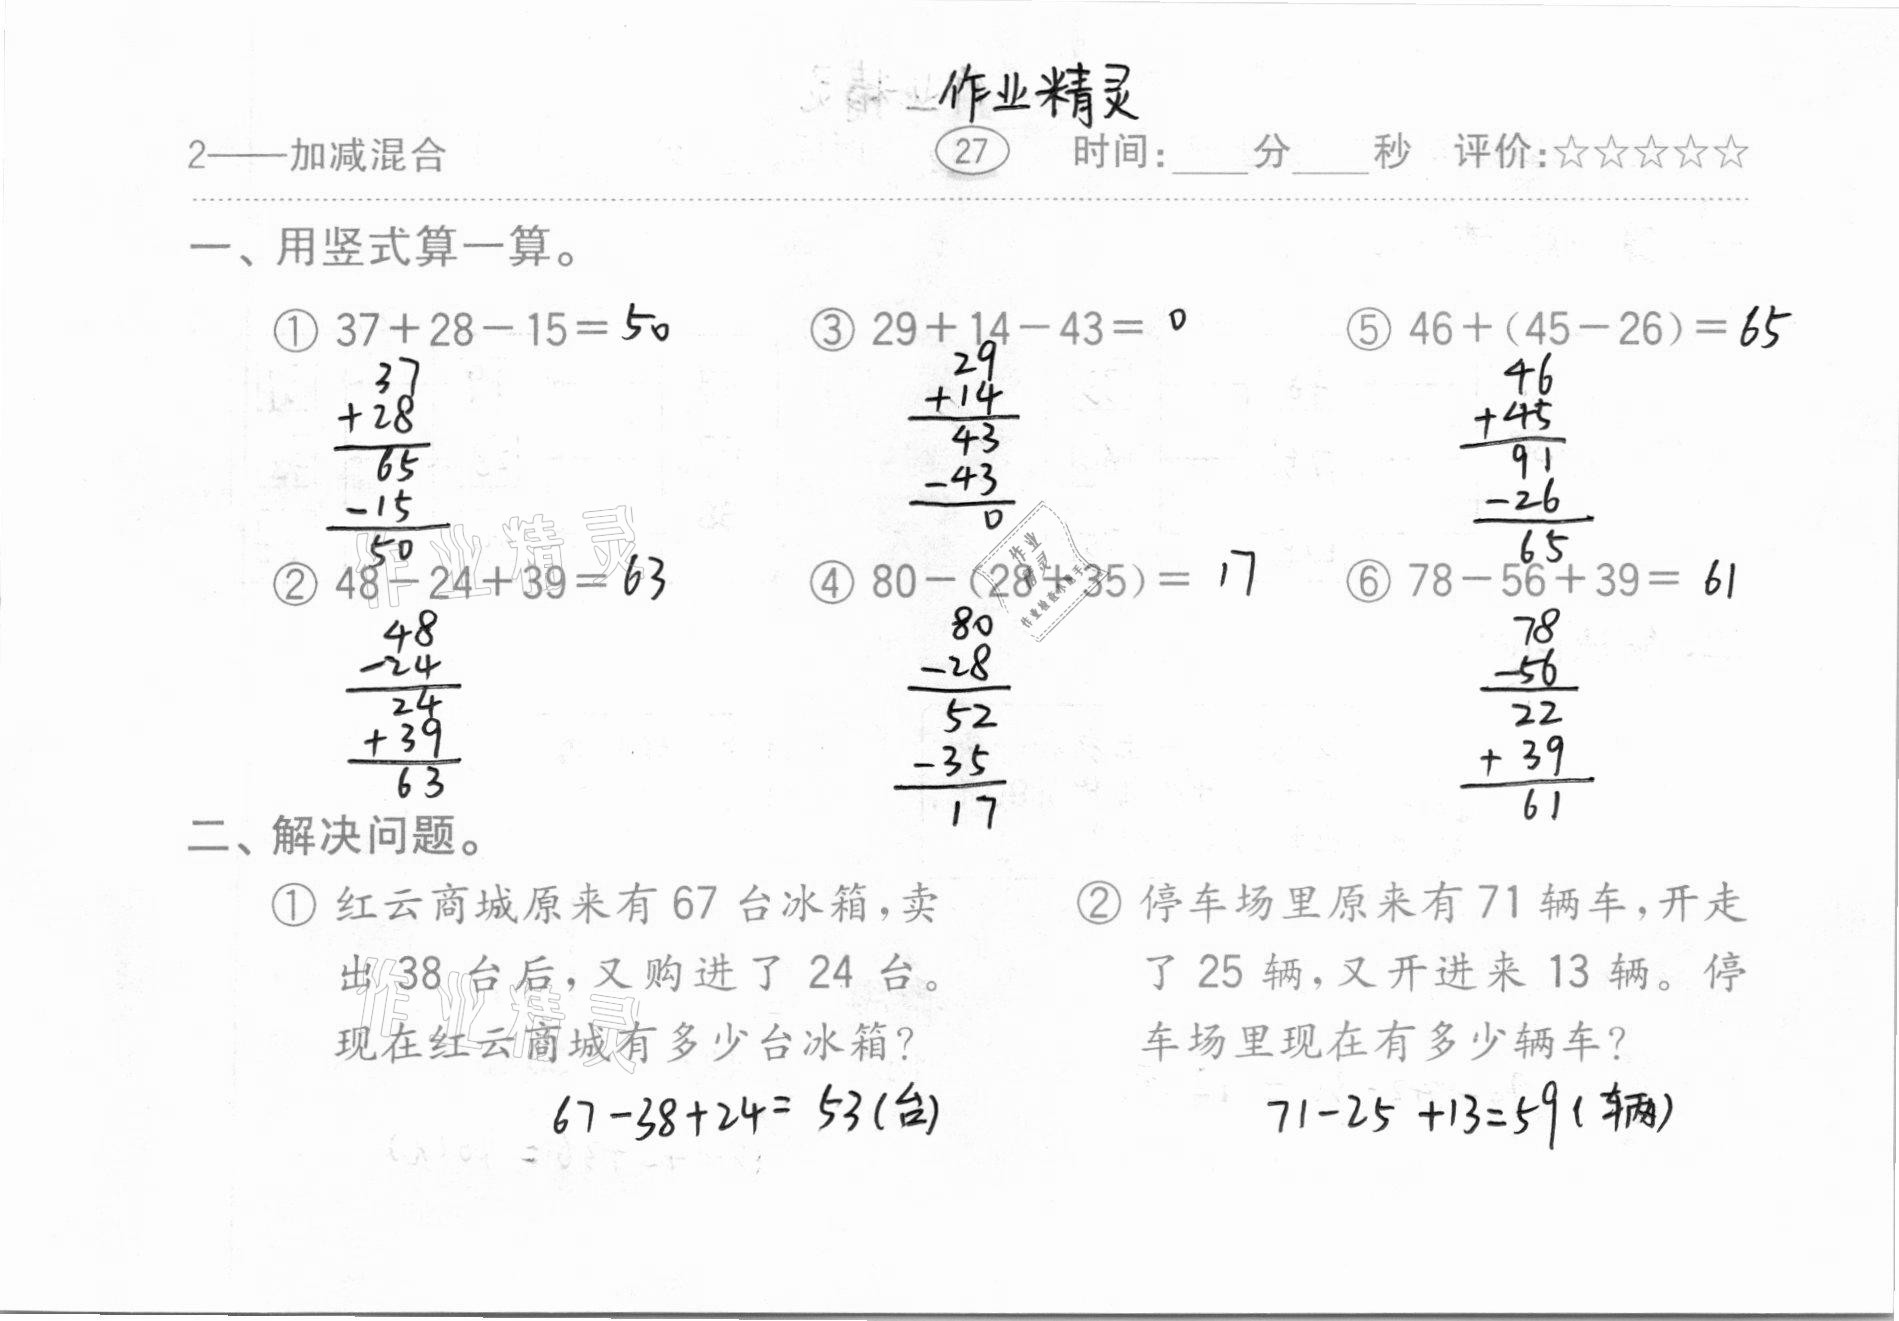 作业精灵
2——加减混合 27 时间:____分____秒 评价:☆☆☆☆☆
一、用竖式算一算。
① 37+28-15= 50
37
+28
65
-15
50
③ 29+14-43= 0
29
+14
43
-43
0
⑤ 46+(45-26)= 65
46
+45
91
-26
65
② 48-24+39= 63
48
-24
24
+39
63
④ 80-(28+35)= 17
80
-28
52
-35
17
⑥ 78-56+39= 61
78
-56
22
+39
61
二、解决问题。
① 红云商城原来有 67 台冰箱,卖
出 38 台后,又购进了 24 台。
现在红云商城有多少台冰箱?
67-38+24= 53(台)
② 停车场里原来有 71 辆车,开走
了 25 辆,又开进来 13 辆。停
车场里现在有多少辆车?
71-25 +13=59(辆)
作业精灵
作业精灵
作业
精灵